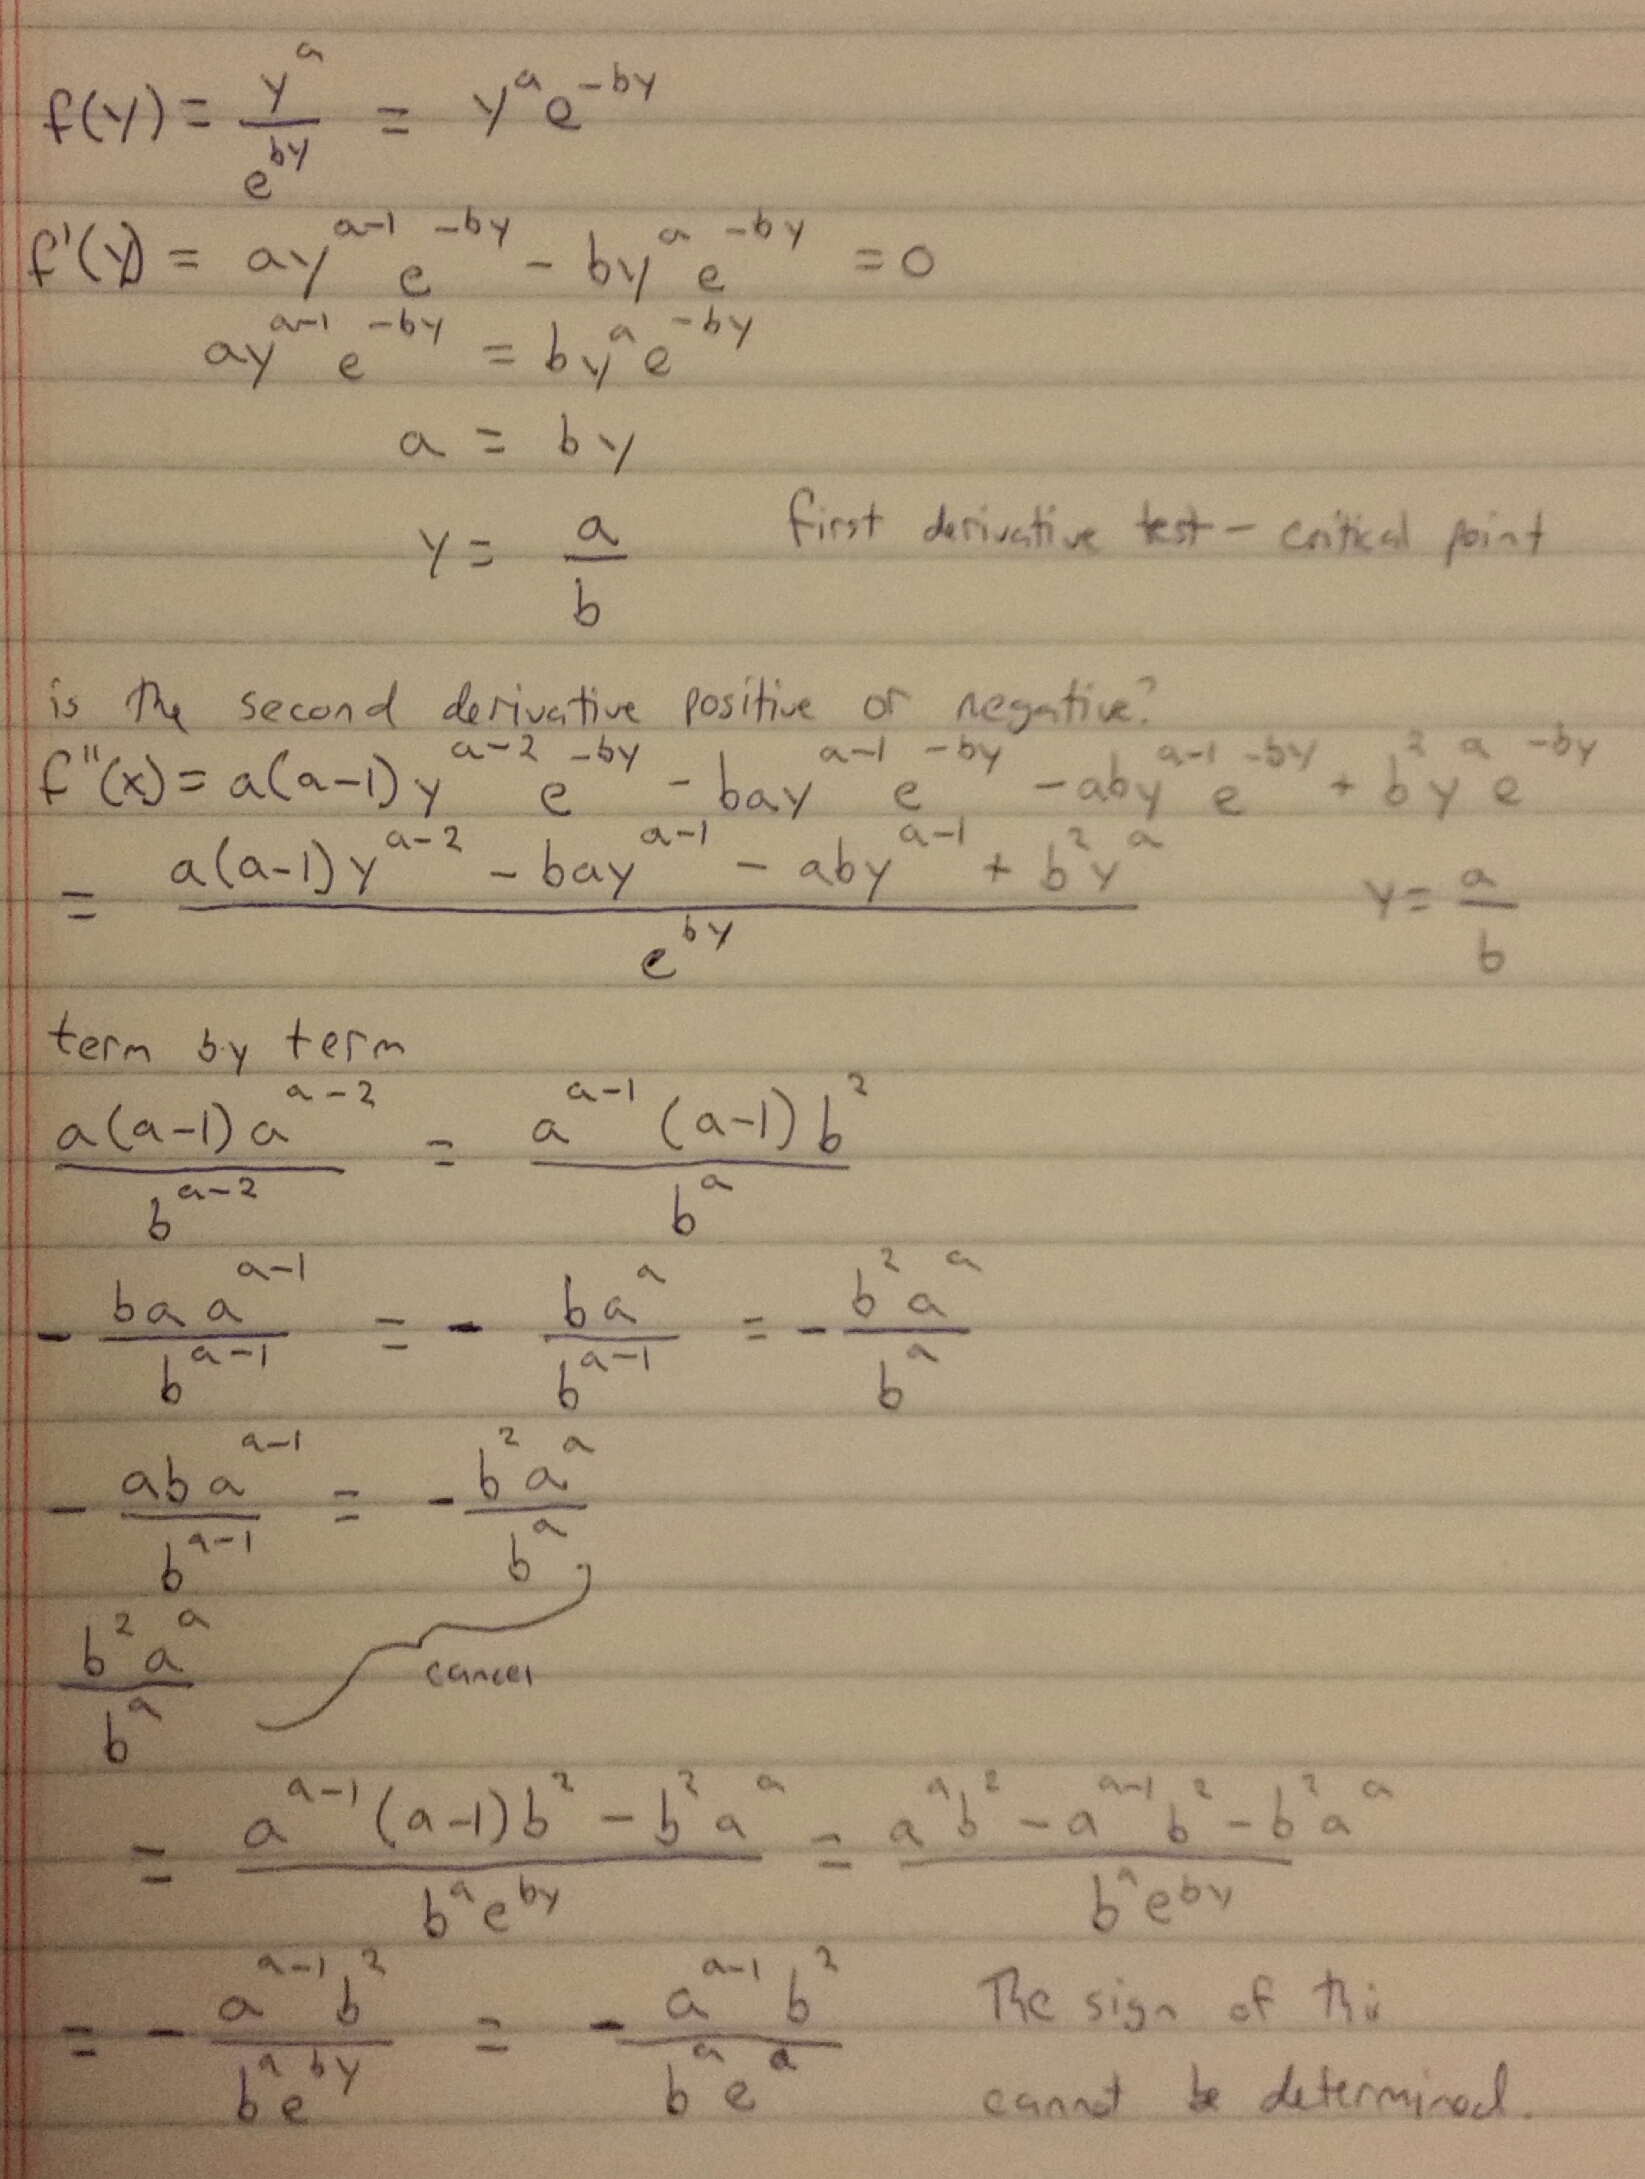 f(y) = y^a / e^{by} = y^a e^{-by}
f'(y) = ay^{a-1} e^{-by} - by^a e^{-by} = 0
ay^{a-1} e^{-by} = by^a e^{-by}
a = by
y = a/b first derivative test - critical point
is the second derivative positive or negative?
f''(x) = a(a-1)y^{a-2} e^{-by} - bay^{a-1} e^{-by} - aby^{a-1} e^{-by} + b^2 y^a e^{-by}
= (a(a-1)y^{a-2} - bay^{a-1} - aby^{a-1} + b^2 y^a) / e^{by} y = a/b
term by term
a(a-1)a^{a-2} / b^{a-2} = a^{a-1} (a-1) b^2 / b^a
- baa^{a-1} / b^{a-1} = - ba^a / b^{a-1} = - b^2 a^a / b^a
- aba^{a-1} / b^{a-1} = - b^2 a^a / b^a
b^2 a^a / b^a cancel
= (a^{a-1} (a-1) b^2 - b^2 a^a) / (b^a e^{by}) = (a^a b^2 - a^{a-1} b^2 - b^2 a^a) / (b^a e^{by})
= - a^{a-1} b^2 / (b^a e^{by}) = - a^{a-1} b^2 / (b^a e^a) The sign of this
cannot be determined.